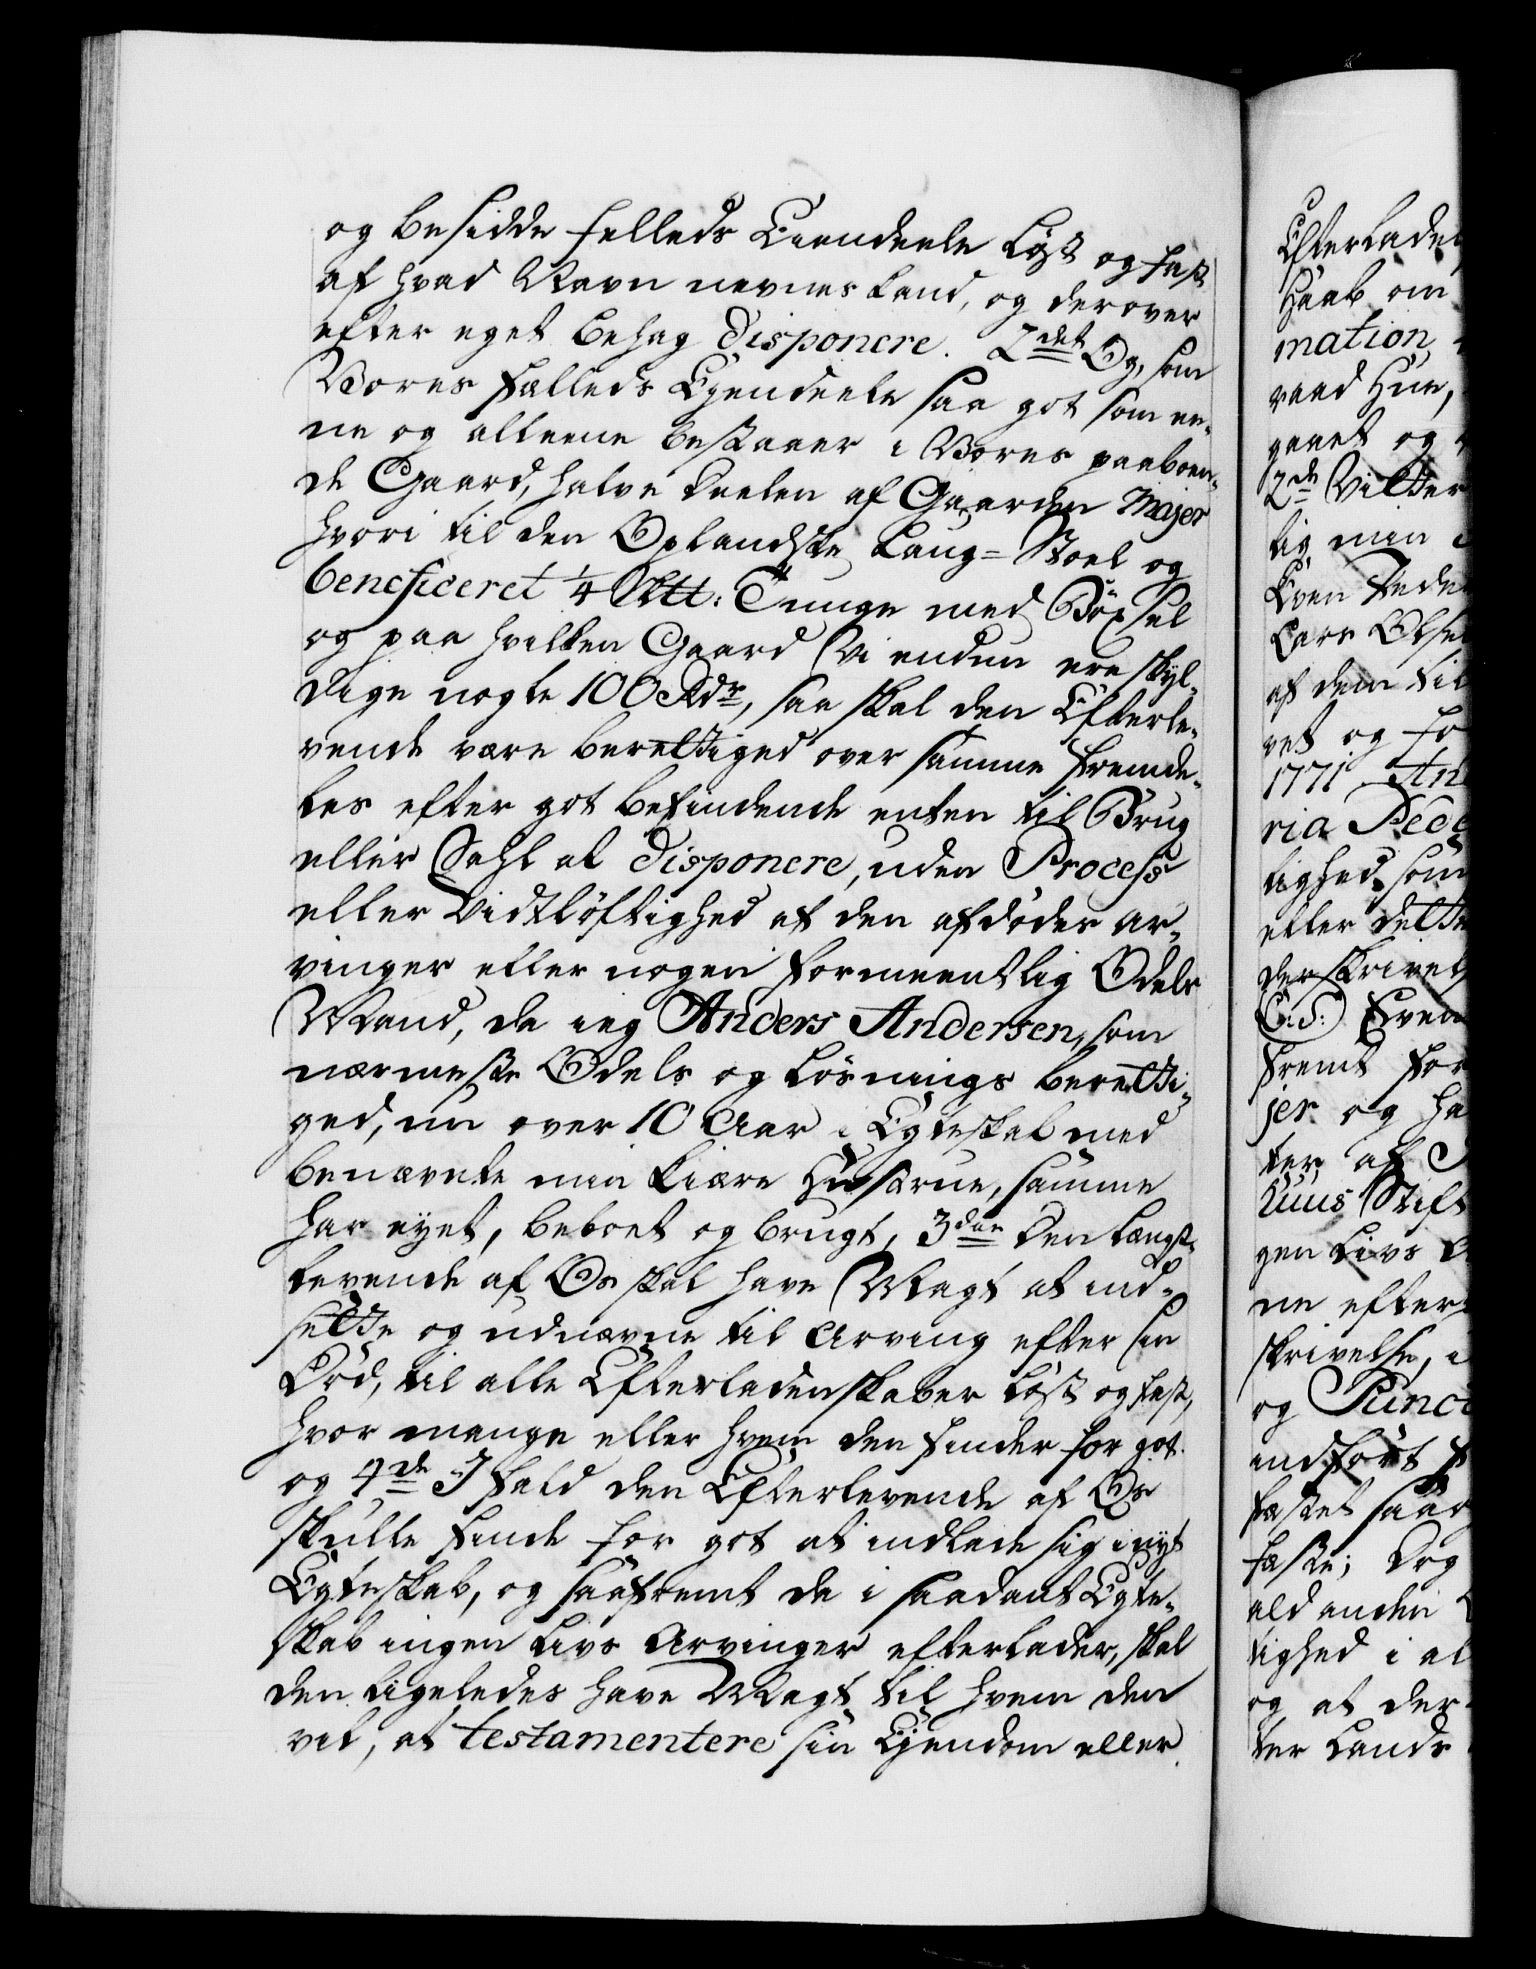 og besidde felleds Eiendeele Løst og fast
af hvad Navn nevnes kand, og derover
efter eget behag disponere. 2det Og, som
Vores fælleds Ejendeele saa got som ee-
ne og alleene bestaaer i Vores paaboen-
de Gaard, halve deelen af Gaarden Majer
hvori til den Oplandske Laug-Stoel og
beneficeret 1/4 Sktt: Tunge med Böxsel
og paa hvilken Gaard Vi endnu ere skyl-
dige nogle 100 Rdr, saa skal den Efterle-
vende være berettiged over samme fremde-
les efter got befindende enten til Brug
eller Sahl at disponere, uden Process
eller Vidtløftighed af den afdødes ar-
vinger eller nogen formeentlig Odels
Mand, da jeg Anders Andersen, som
nærmeste Odels og Løsnings beretti-
ged, nu over 10 Aar i Egteskab med
benævnte min kiære Hustrue, samme
har eyet, beboet og brugt, 3die Den længst-
levende af Os skal have Magt at ind-
sette og udnævne til Arving efter sin
Død, til alle Efterladenskaber Løst og fast,
hvor mange eller hvem den finder for got.
og 4de I fald den Efterlevende af Os
skulle finde for got at indlade sig i nyt
Egteskab, og saafremt de i saadant Egte-
skab ingen Livs Arvinger efterlader, skal
den ligeledes have Magt til hvem den
vil, at testamentere sin Ejendom eller
Efterladen
Haab om
mation
raad Hun,
gaaet og
2de Vitter
lig min
Even Peder
Lars Olse
af dem til
vet og fo
1771 An
ria Pede
lighed som
eller dette
derskrivel
C: S: Even
fremt for
jer og ha
ter af
huus Stift
gen Livs
ne efter
skrivelse, i
og Punct
indført
fæstet saad
fæste; Dog
ald anden
tighed i al
og at der
ter Lands